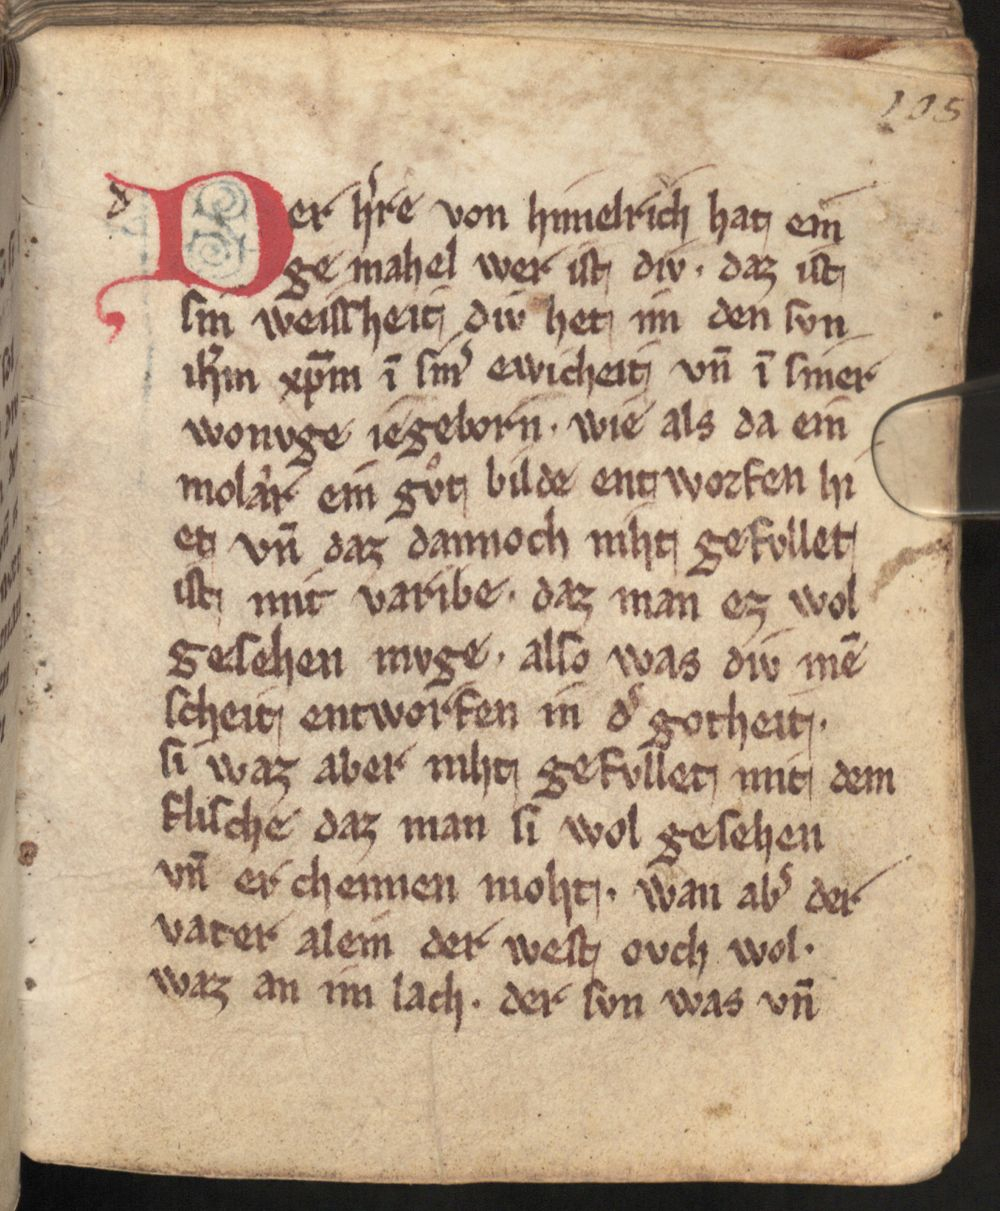 105
Der hr̄e von himelrich hat ein
ge mahel wer ist div · daz ist
sin weissheit div het im den svn
ih̄m xp̄m ī sin͛ ewicheit vn̄ ī siner
wonvge ie geborn · wie als da ein
molar ein gůt bilde entworfen hi
et vn̄ daz dannoch niht gefvllet
ist mit varibe · daz man ez wol
gesehen mvge · also was div mē
scheit entworfen in d͛ gotheit ·
si waz aber niht gefvllet mit dem
flische daz man si wol gesehen
vn̄ er chennen moht · wan ab͛ der
vater alein der west ovch wol ·
waz an im lach · der svn was vn̄